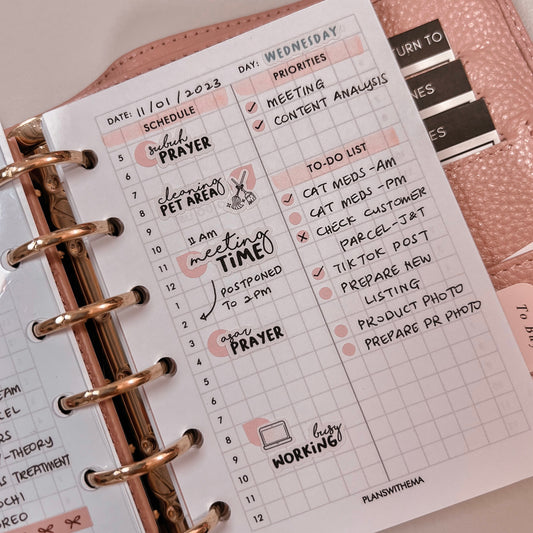 DATE: 11/01/2023
DAY: WEDNESDAY
SCHEDULE
5
6
7
8
9
10
11
12
1
2
3
4
5
6
7
8
9
10
11
12
subuh
PRAYER
cleaning
PET AREA
11 AM
meeting
TIME
POSTPONED
TO 2 PM
asar
PRAYER
busy
WORKING
PRIORITIES
MEETING
CONTENT ANALYSIS
TO-DO LIST
CAT MEDS - AM
CAT MEDS - PM
CHECK CUSTOMER
PARCEL - J&T
TIKTOK POST
PREPARE NEW
LISTING
PRODUCT PHOTO
PREPARE PR PHOTO
PLANSWITHEMA
TURN TO
NES
To Bu
-THEORY
TREATMENT